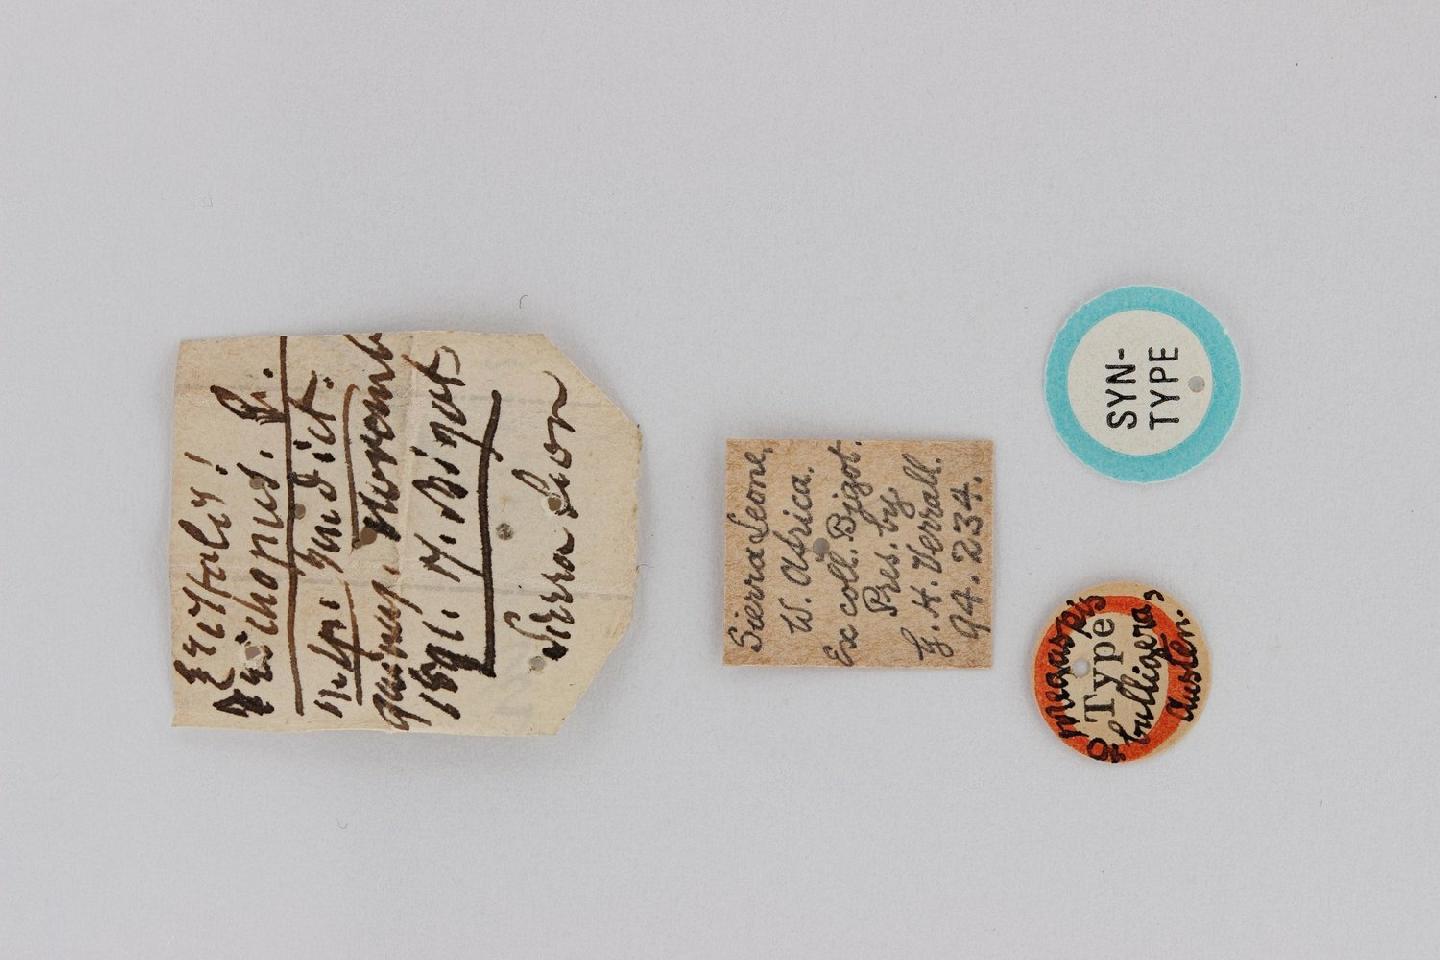 Eristalis!
♀.
Indict.
quinny. novemb
1891. J. Bigot
Sierra Leon
Sierra Leone,
W. Africa.
Ex coll. Bigot.
Pres. by
G. H. Verrall.
94. 234.
SYN-
TYPE
Megaspis
Type
♀ bulligera,
Austen.